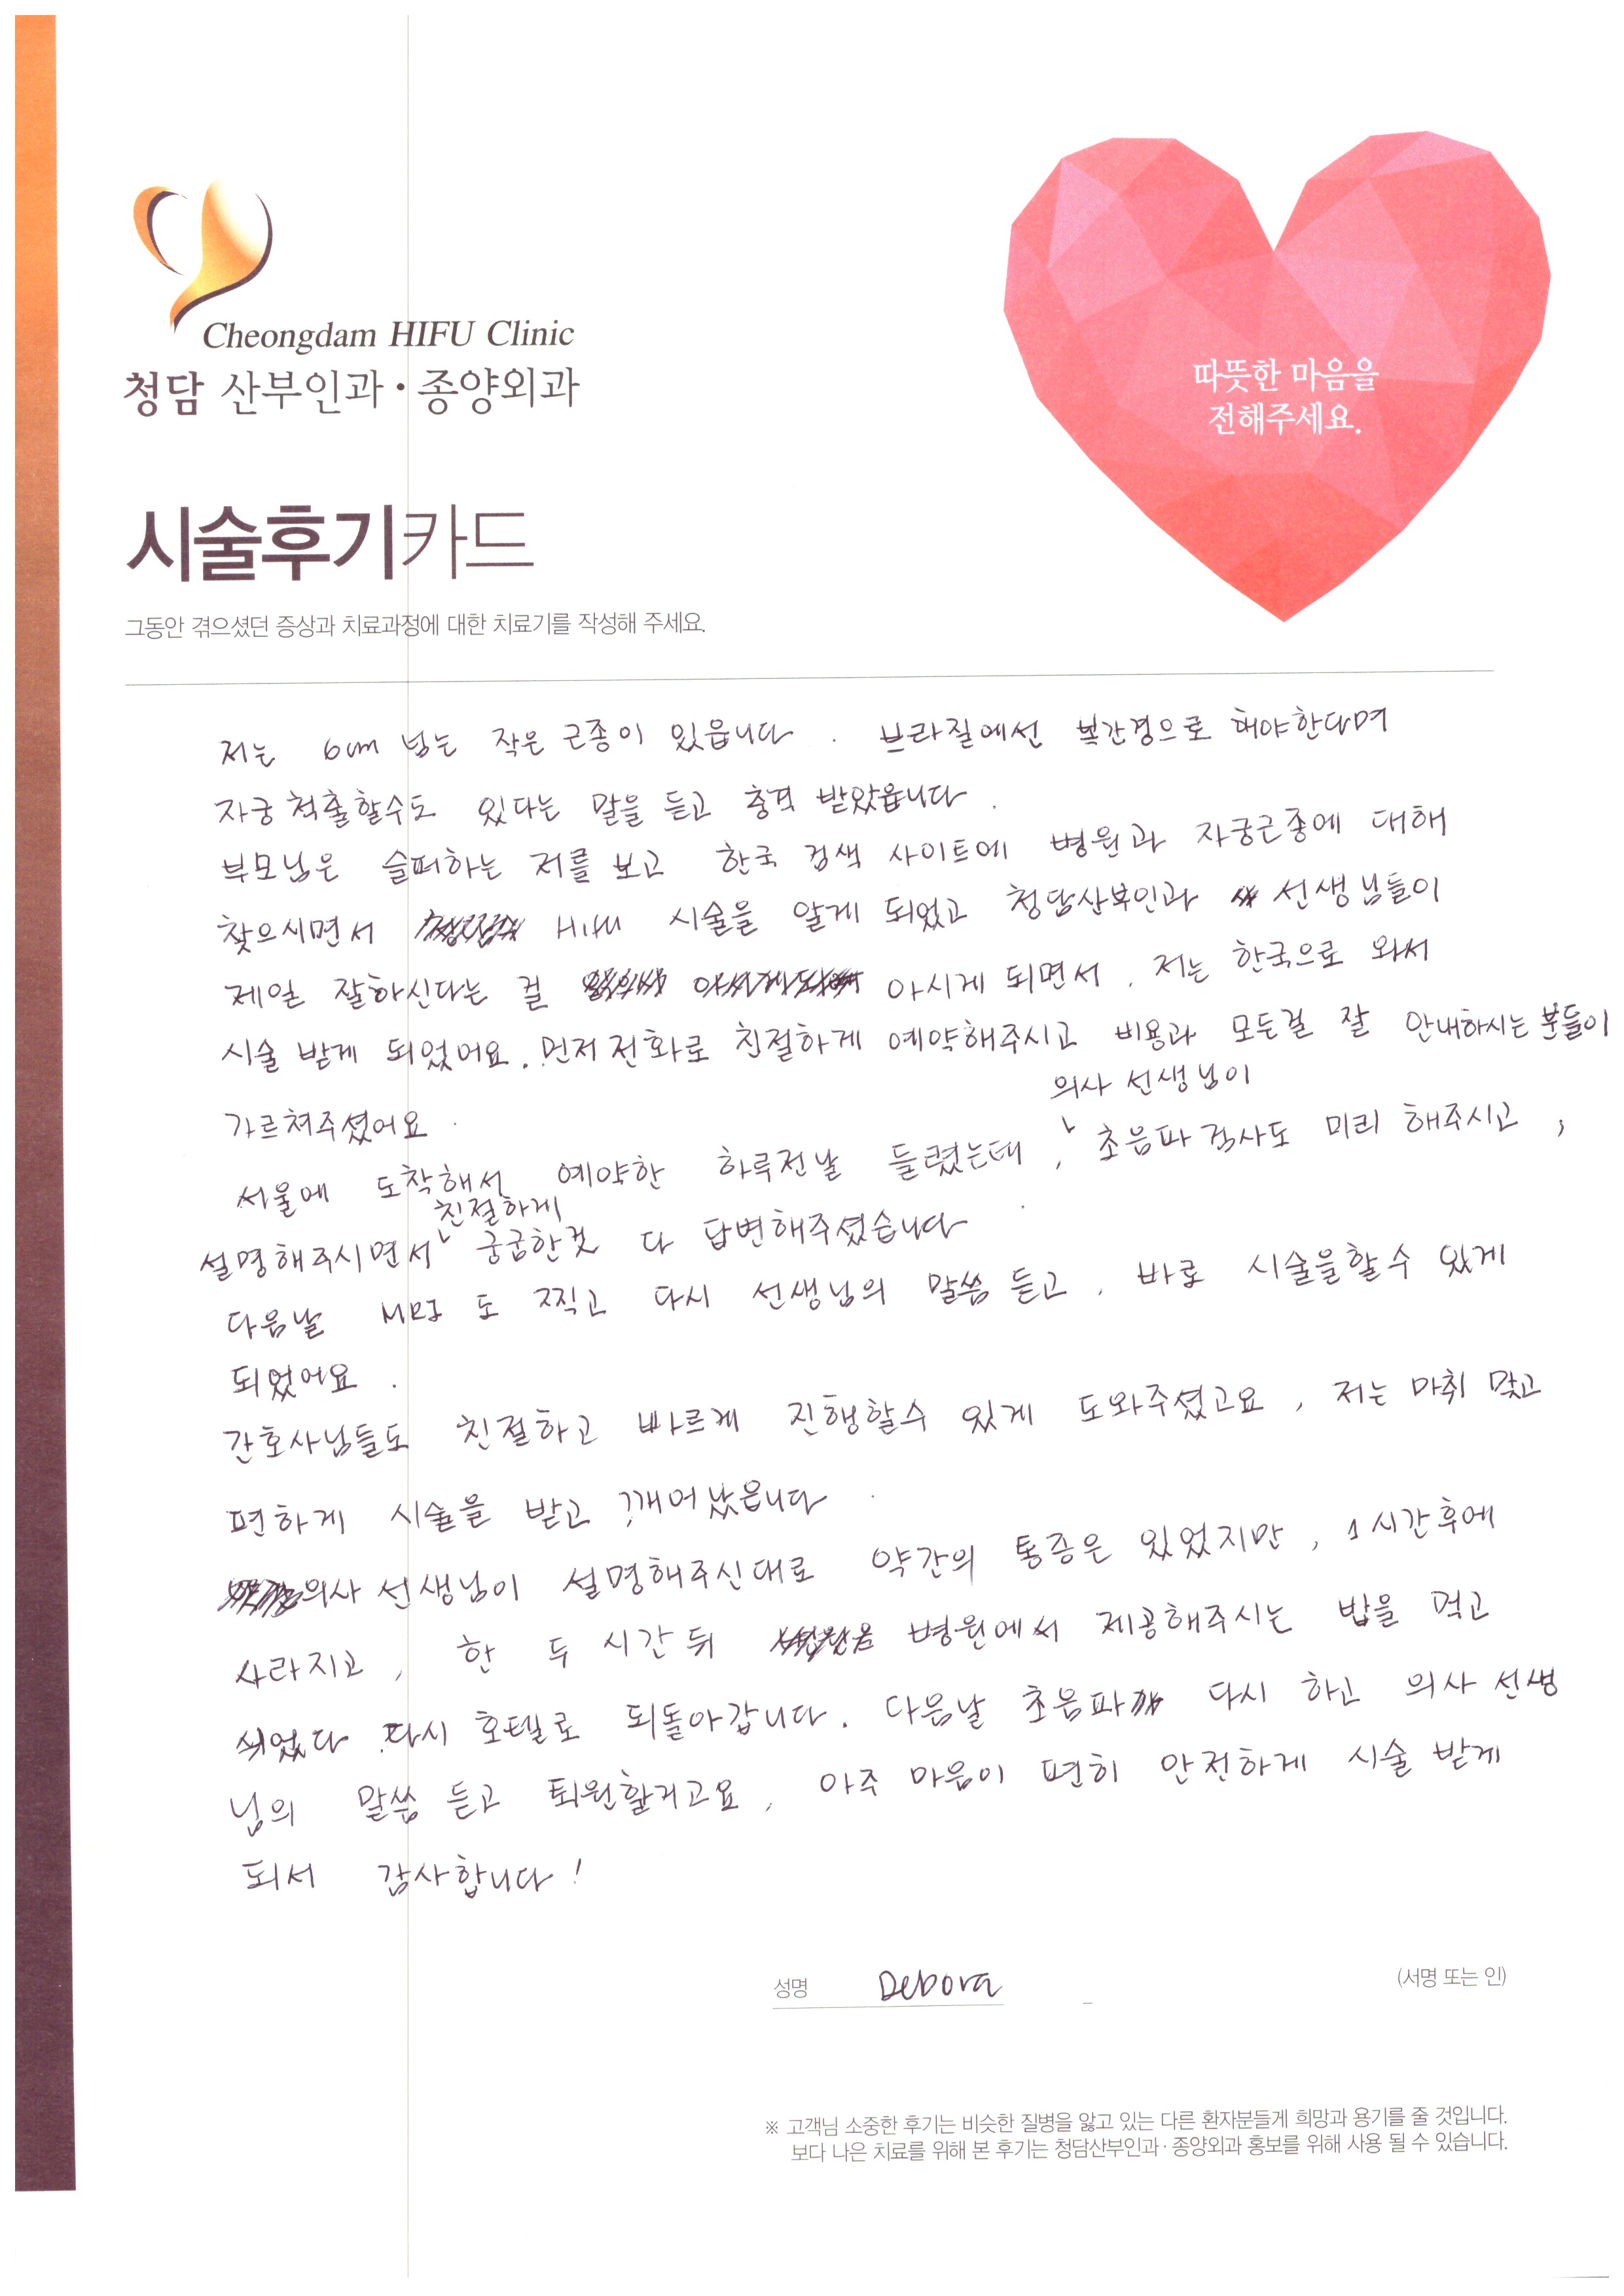 Cheongdam HIFU Clinic
청담 산부인과·종양외과
따뜻한 마음을
전해주세요.
시술후기카드
그동안 겪으셨던 증상과 치료과정에 대한 치료기를 작성해 주세요.
저는 6cm 넘는 작은 근종이 있읍니다. 브라질에선 복간경으로 해야한다며
자궁 척출할수도 있다는 말을 듣고 충격 받았읍니다.
부모님은 슬퍼하는 저를 보고 한국 검색 사이트에 병원과 자궁근종에 대해
찾으시면서 Hifu 시술을 알게 되었고 청담산부인과 선생님들이
제일 잘하신다는 걸 아시게 되면서, 저는 한국으로 와서
시술 받게 되었어요. 먼저 전화로 친절하게 예약해주시고 비용과 모든걸 잘 안내하시는 분들이
가르쳐주셨어요.
의사 선생님이
서울에 도착해서 예약한 하루전날 들렸는데, 초음파 검사도 미리 해주시고,
친절하게
설명해주시면서 궁굼한것 다 답변해주셨습니다.
다음날 MRI 도 찍고 다시 선생님의 말씀 듣고, 바로 시술을할수 있게
되었어요.
간호사님들도 친절하고 빠르게 진행할수 있게 도와주셨고요, 저는 마취 맞고
편하게 시술을 받고 깨어났읍니다.
의사 선생님이 설명해주신대로 약간의 통증은 있었지만, 1시간후에
사라지고, 한 두 시간 뒤 병원에서 제공해주시는 밥을 먹고
쉬었다 다시 호텔로 되돌아갑니다. 다음날 초음파 다시 하고 의사 선생
님의 말씀 듣고 퇴원할거고요, 아주 마음이 편히 안전하게 시술 받게
되서 감사합니다!
성명 Debora (서명 또는 인)
※ 고객님 소중한 후기는 비슷한 질병을 앓고 있는 다른 환자분들게 희망과 용기를 줄 것입니다.
보다 나은 치료를 위해 본 후기는 청담산부인과·종양외과 홍보를 위해 사용 될 수 있습니다.